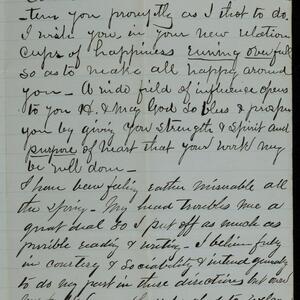 -tern you promptly as I that to do.
I wish you in your new relation
cups of happiness running over full
so as to make all happy around
you – A wide field of influence opens
to you H. & may God so bless & prosper
you by giving you strength & spirit and
purpose of heart that your work may
be well done –
I have been feeling rather miserable all
the spring – My head troubles me a
great deal so I put off as much as
possible reading & writing – I believe fully
in courtesy & sociability & intend generally
to do my part in these directions but